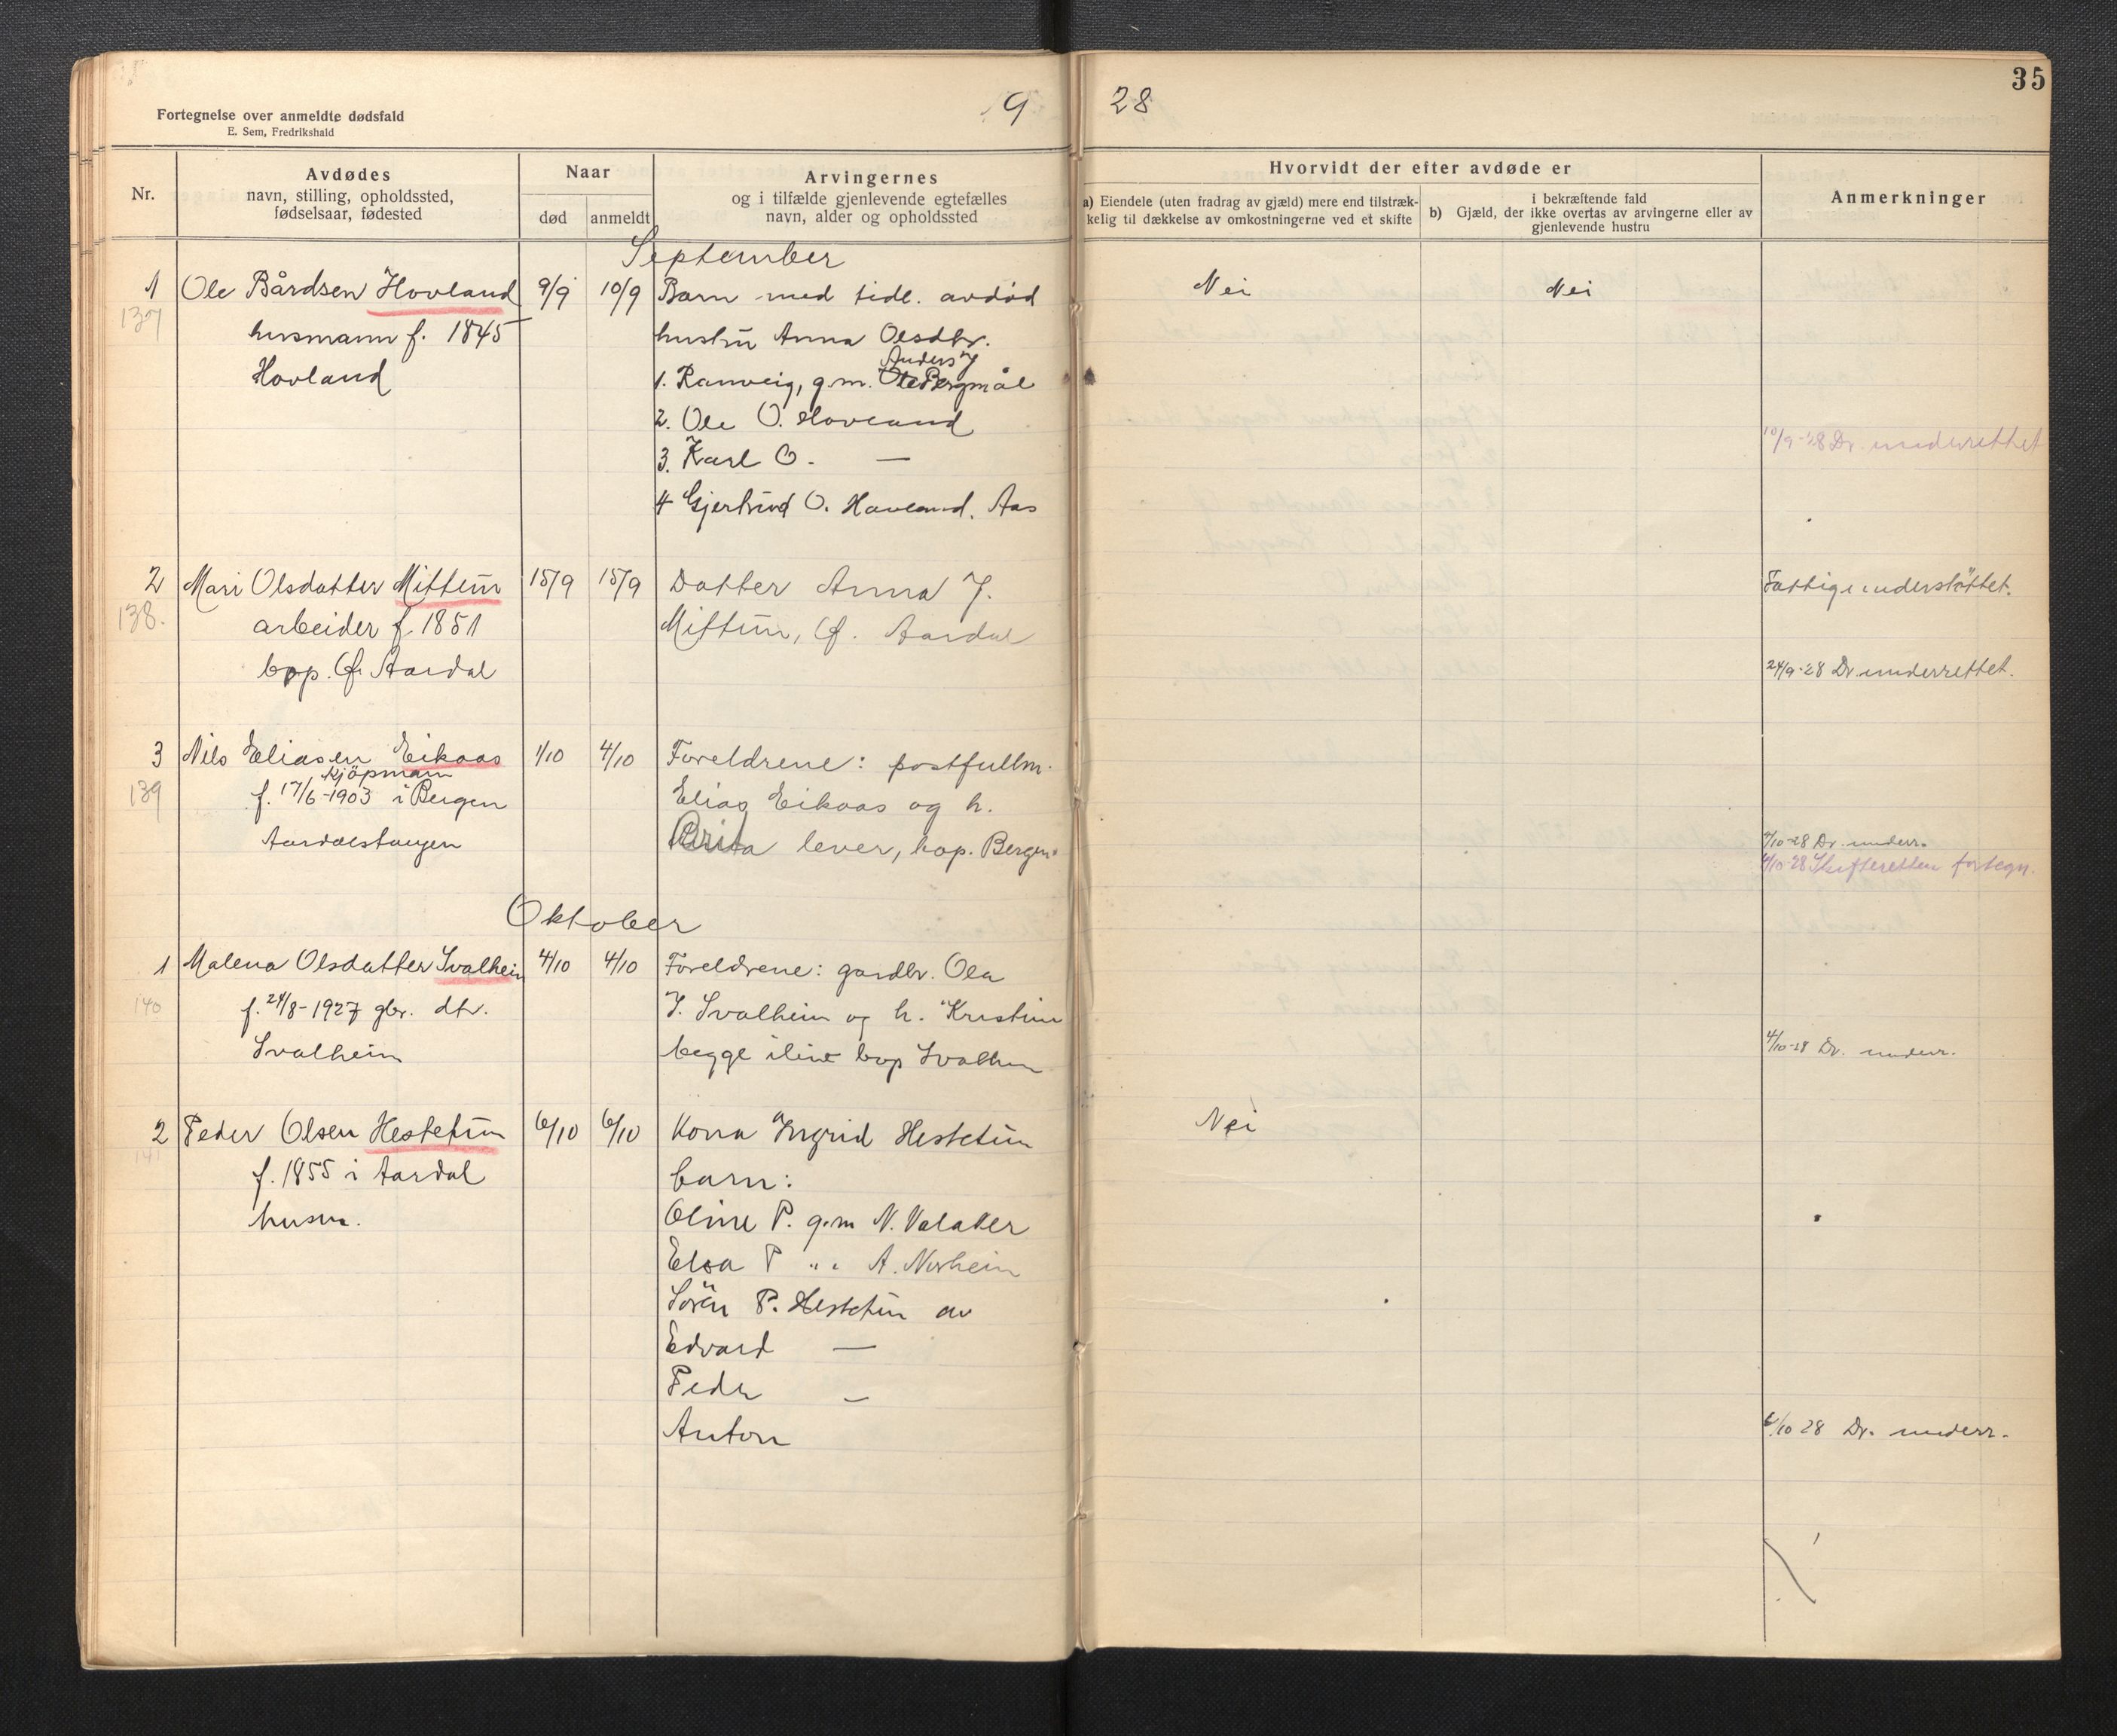 35
Fortegnelse over anmeldte dødsfald
E. Sem, Fredrikshald
19 28
Nr.
Avdødes
navn, stilling, opholdssted,
fødselsaar, fødested
Naar
død
anmeldt
Arvingernes
og i tilfælde gjenlevende egtefælles
navn, alder og opholdssted
Hvorvidt der efter avdøde er
a) Eiendele (uten fradrag av gjæld) mere end tilstræk-
kelig til dækkelse av omkostningerne ved et skifte
i bekræftende fald
b) Gjæld, der ikke overtas av arvingerne eller av
gjenlevende hustru
Anmerkninger
September
1 Ole Bårdsen Hovland 9/9 10/9 Barn med tidl. avdød Nei Nei
137 husmann f. 1845 hustru Anna Olsdtr.
Anders J
Hovland 1. Ranveig, g.m. Ole Bergmål
2. Ole O. Hovland
3. Karl O. —
10/9-28 Dr. underrettet
4 Gjertrud O. Hovland, Aas
2 Mari Olsdatter Mittun 15/9 15/9 Datter Anna J. Fattigunderstöttet.
138. arbeider f. 1851 Mittun, Ø. Aardal
bop. Ø. Aardal 24/9-28 Dr. underrettet.
3 Nils Eliasen Eikaas 1/10 4/10 Foreldrene: postfullm.
kjöpmann
139 f. 17/6-1903 i Bergen Elias Eikaas og h.
Aardalstangen Brita lever, bop. Bergen.
4/10-28 Dr. underr.
4/10-28 Skifteretten fortegn.
Oktober
1 Malena Olsdatter Svalheim 4/10 4/10 Foreldrene: gardbr. Ola
140 f. 24/8-1927 gbr. dtr. J. Svalheim og h. Kristine
Svalheim begge ilive bop Svalheim 4/10-28 Dr. underr.
2 Peder Olsen Hestetun 6/10 6/10 Kona Ingrid Hestetun Nei
141 f. 1855 i Aardal barn:
husm. Oline P. g.m N. Valaker
Elsa P " " A. Norheim
Sören P. Hestetun av
Edvard —
Peder —
Anton 6/10 28 Dr. underr.